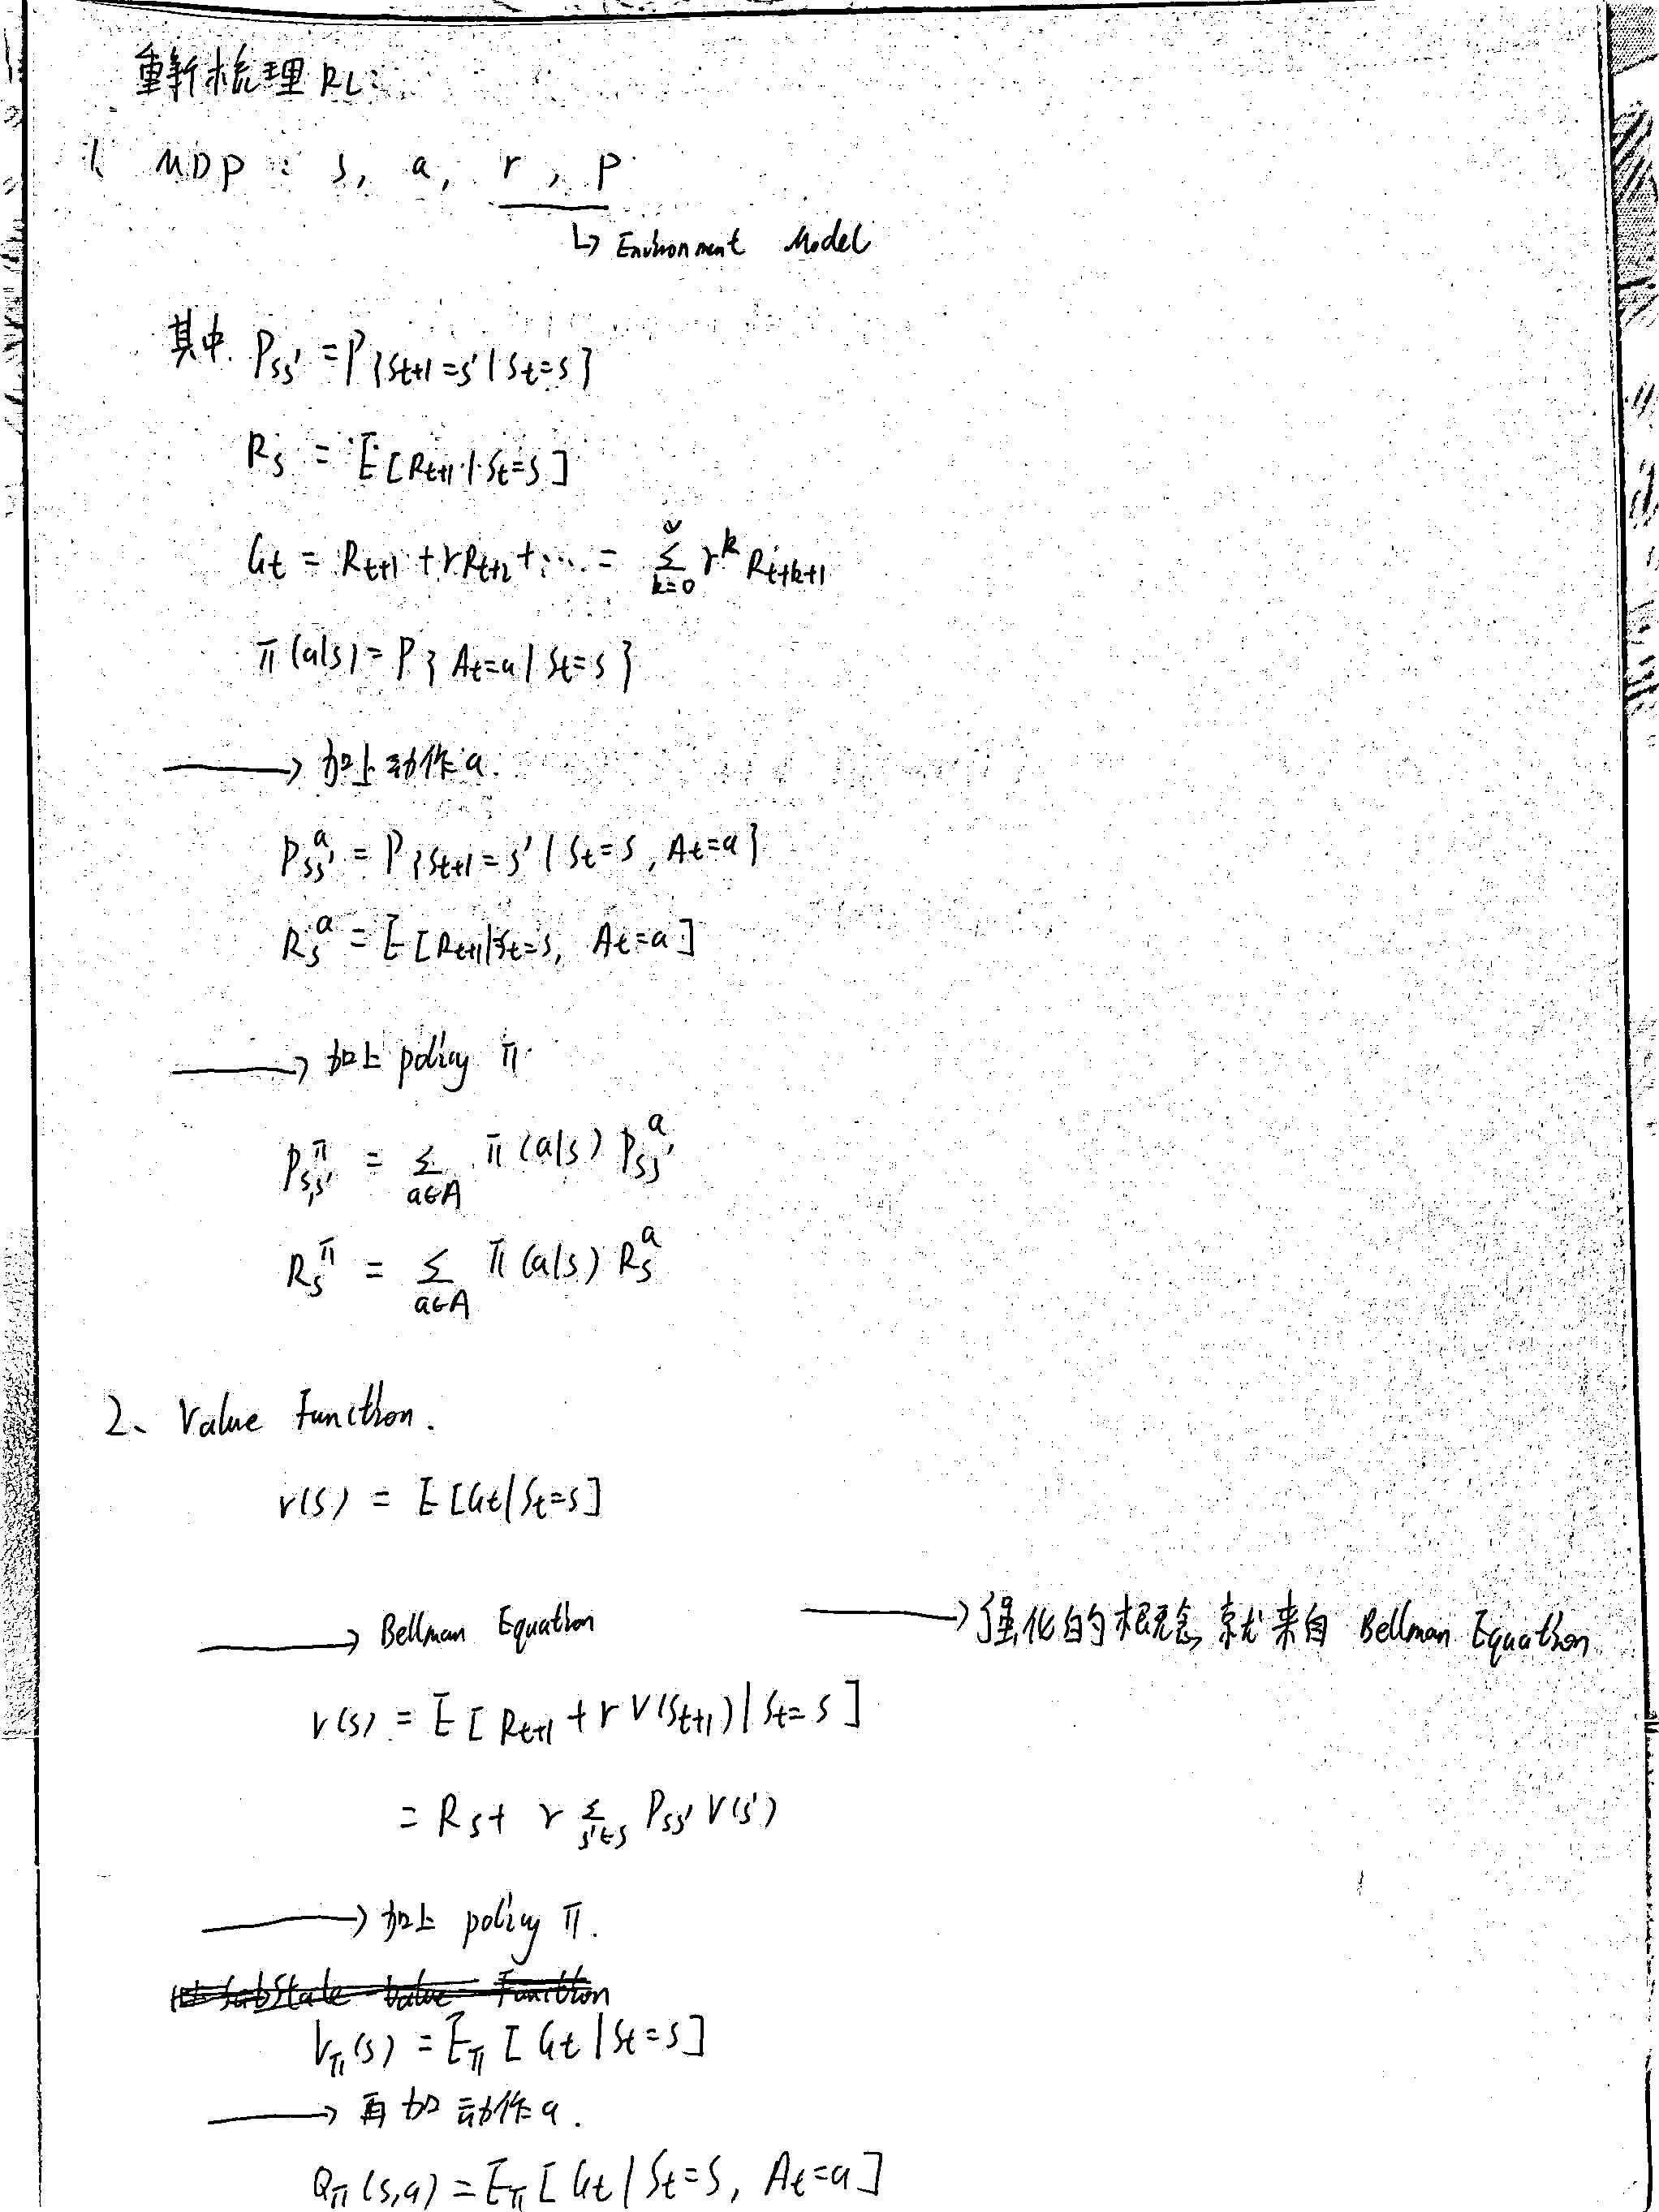 重新梳理RL:
1、MDP: s, a, r, p
↳ Environment Model
其中 Pss' = P{St+1=s'|St=s}
Rs = E[Rt+1|St=s]
Gt = Rt+1 + γRt+2 + ... = ∞∑k=0 γ^k Rt+k+1
π(a|s) = P{At=a|St=s}
→ 加上动作a.
P^a ss' = P{St+1=s'|St=s, At=a}
R^a s = E[Rt+1|St=s, At=a]
→ 加上 policy π.
P^π s,s' = ∑a∈A π(a|s) P^a ss'
R^π s = ∑a∈A π(a|s) R^a s
2、Value Function.
v(s) = E[Gt|St=s]
→ Bellman Equation → 强化的概念就来自 Bellman Equation
v(s) = E[Rt+1 + γV(St+1)|St=s]
= Rs + γ ∑s'∈S Pss' V(s')
→ 加上 policy π.
State Value Function
Vπ(s) = Eπ[Gt|St=s]
→ 再加动作a.
Qπ(s,a) = Eπ[Gt|St=s, At=a]